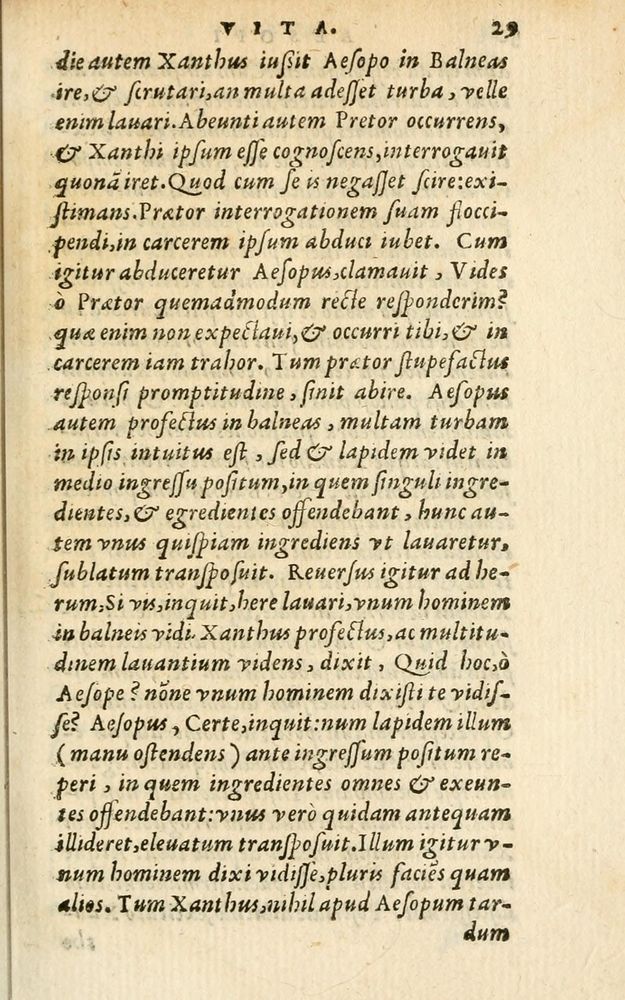 VITA. 29
die autem Xanthus iußit Aesopo in Balneas
ire, & scrutari, an multa adesset turba, velle
enim lauari. Abeunti autem Pretor occurrens,
& Xanthi ipsum esse cognoscens, interrogauit
quonā iret. Quod cum se is negasset scire: exi-
stimans. Prætor interrogationem suam flocci-
pendi, in carcerem ipsum abduci iubet. Cum
igitur abduceretur Aesopus, clamauit, Vides
ò Prætor quemadmodum recte responderim?
quæ enim non expectaui, & occurri tibi, & in
carcerem iam trahor. Tum prætor stupefactus
responsi promptitudine, sinit abire. Aesopus
autem profectus in balneas, multam turbam
in ipsis intuitus est, sed & lapidem videt in
medio ingressu positum, in quem singuli ingre-
dientes, & egredientes offendebant, hunc au-
tem vnus quispiam ingrediens vt lauaretur,
sublatum transposuit. Reuersus igitur ad he-
rum, Si vis, inquit, here lauari, vnum hominem
in balneis vidi. Xanthus profectus, ac multitu-
dinem lauantium videns, dixit, Quid hoc, ò
Aesope? nōne vnum hominem dixisti te vidis-
se? Aesopus, Certe, inquit: num lapidem illum
(manu ostendens) ante ingressum positum re-
peri, in quem ingredientes omnes & exeun-
tes offendebant: vnus verò quidam antequam
illideret, eleuatum transposuit. Illum igitur v-
num hominem dixi vidisse, pluris faciēs quam
alios. Tum Xanthus, nihil apud Aesopum tar-
dum